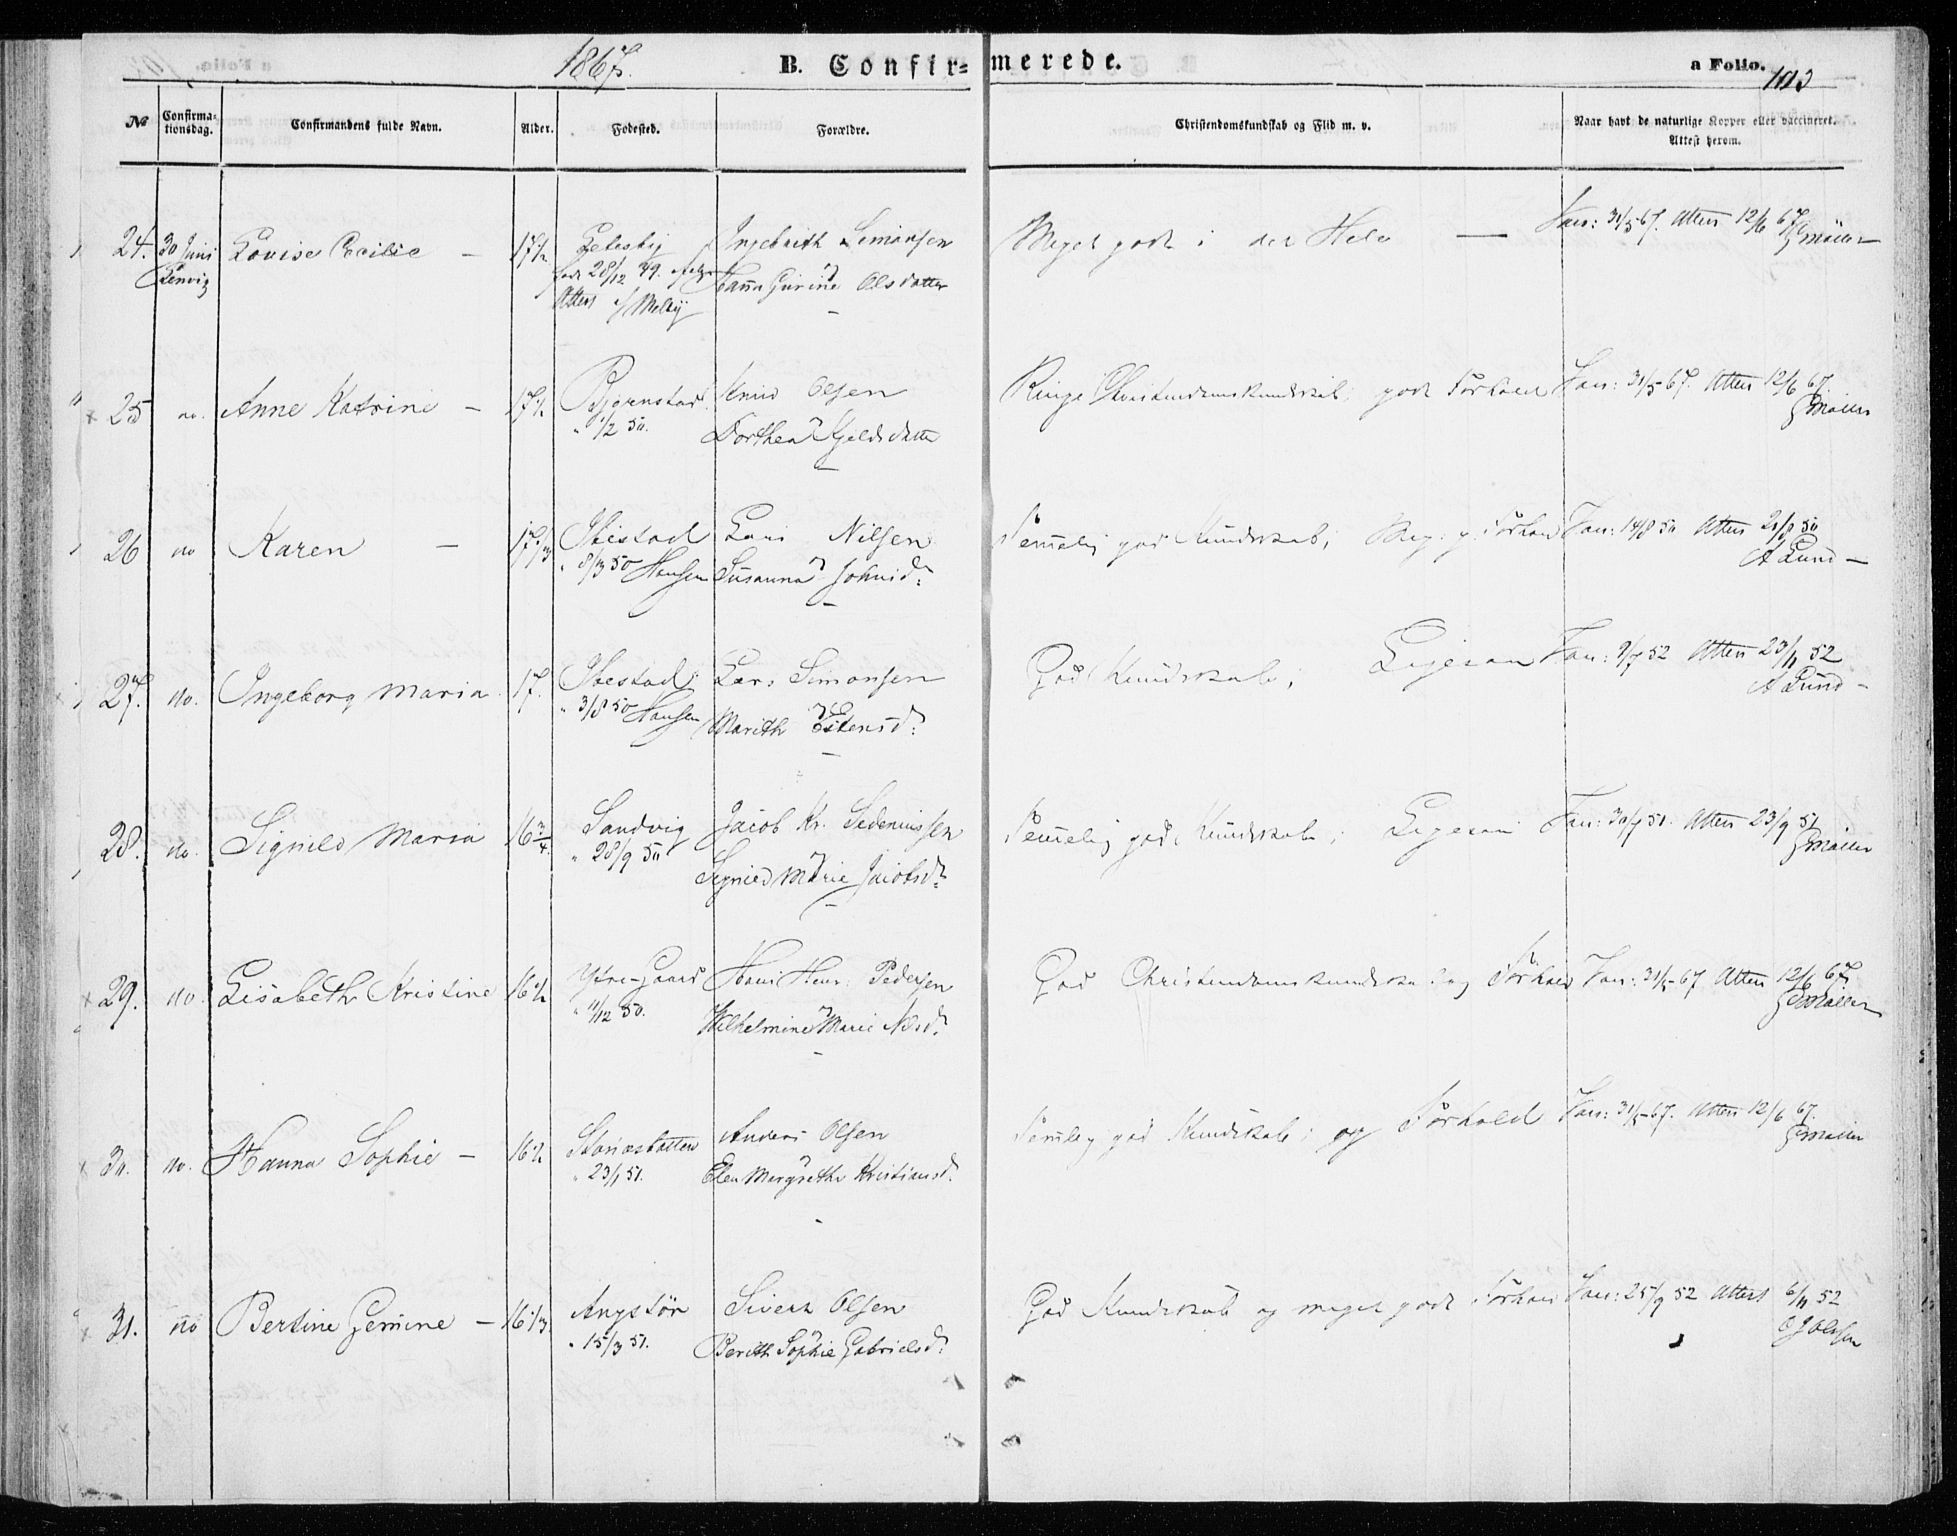 1867.
B. Confirmerede.
a Folio. 103
No
Confirmationsdag.
Confirmandens fulde Navn.
Alder.
Fødested.
Forældre.
Christendomskundskab og Flid m. v.
Naar havt de naturlige Kopper eller vaccineret.
Attest herom.
24. 30 Juni Louise Cecilie – 17½ Ingebrith Simonsen Meget godt i det Hele — Vac: 31/5 67. Attest 12/6 67 Møller
Lenvig født 28/12 49. Hanna Gurine Olsdatter
Attest Melby
25 do. Anne Katrine – 17½ Bjørnstad Knud Olsen Ringe Christendomskundskab, godt Forhold Vac: 31/5 67. Attest 12/6 67.
" 1/2 50. Dorthea Kjeldsdatter Møller
26 do Karen – 17 1/3 Ibestad Lars Nilsen Temmelig god Kundskab, Meg. g. Forhold Vac: 14/8 50 Attest 21/8 50
" 8/3 50 Hansen Susanna Johnsd: A Lund –
27. do. Ingeborg Maria 17. Ibestad Lars Simonsen God Kundskab, Vac: 9/7 52 Attest 23/11 52
" 3/8 50 Hansen Marith Estensd: A Lund –
28. do. Signild Maria 16 3/4. Sandvig Jacob Kr. Sedeniussen Temmelig god Kundskab, Vac: 30/7 51. Attest 23/9 51
" 28/9 50 Signild Marie Jacobsd: Møller
29. do. Lisabeth Kristine 16½ Ytre-Gaard Hans Henr. Pedersen God Christendomskundskab og Forhold Vac: 31/5 67 Attest 12/6 67.
" 11/12 50. Wilhelmine Marie Nilsd: Møller
30. do. Hanna Sophie – 16½ Anders Olsen Temmelig god Kundskab og Forhold Vac: 31/5 67. Attest 12/6 67.
" 23/1 51. Elen Margrethe Kristiansd: Møller
31. do Bertine Gemine – 16 1/3 Angstør Sivert Olsen God Kundskab og meget godt Forhold Vac: 25/9 52 Attest 6/11 52
" 15/3 51. Berith Sophie Gabrielsd: Olsen